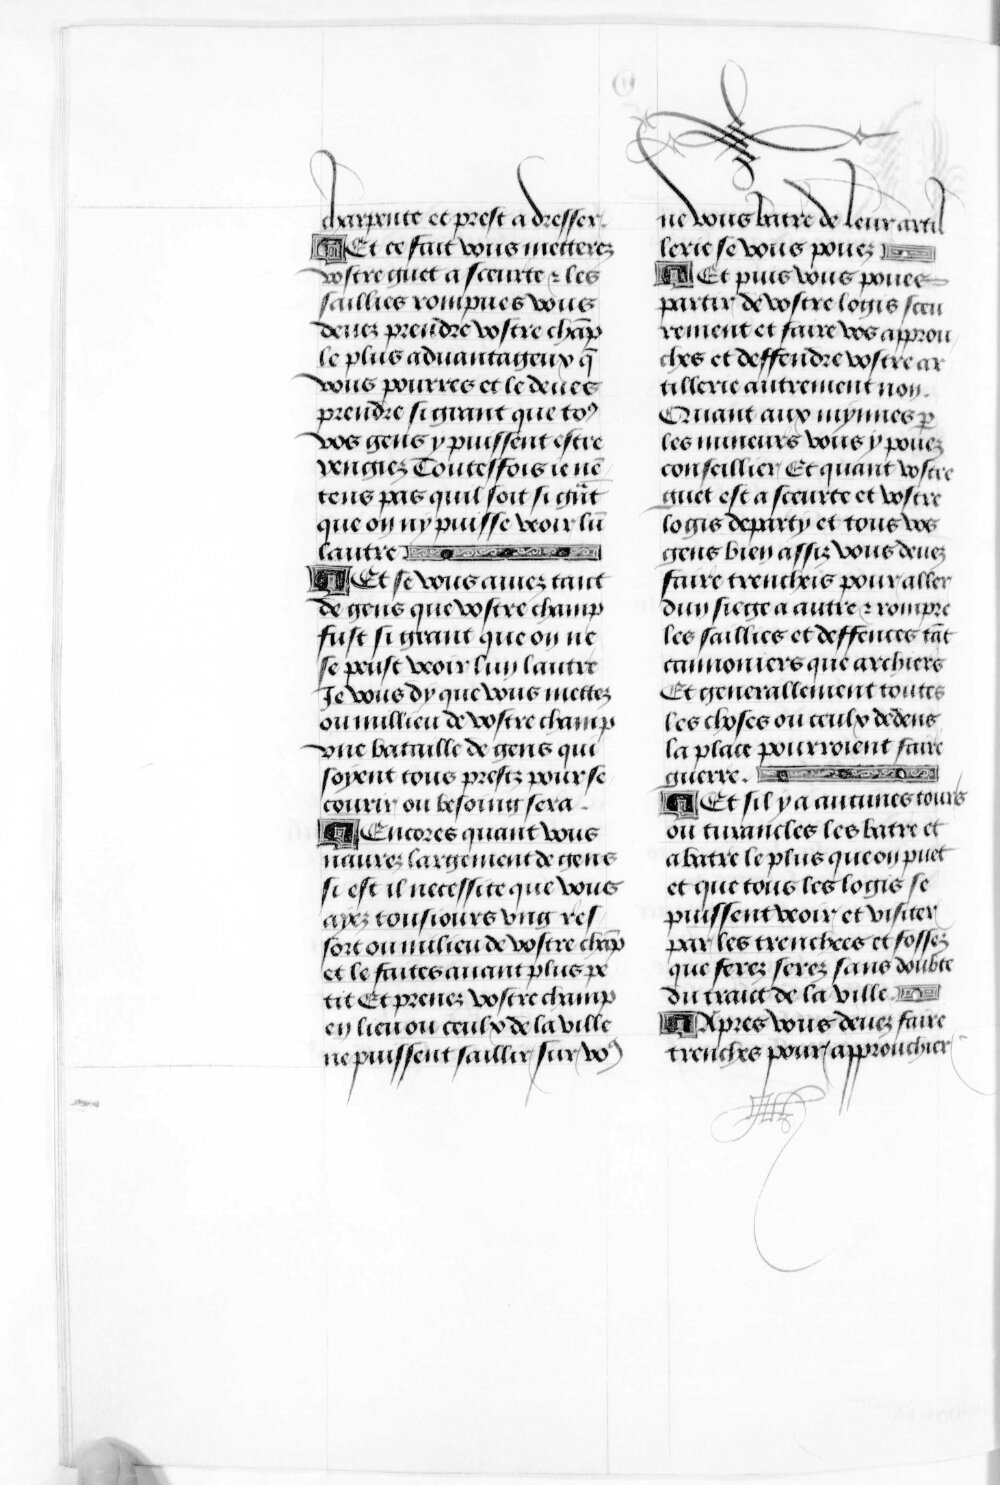 charpente et prest a dresser.
Et ce fait vous metterez
vostre guet a sceurte ⁊ les
saillies rompues vous
deuez prendre vostre chãp
le plus aduantageux q̃
vous pourres et le deues
prendre si grant que toꝰ
vos gens y puissent estre
rengiez Toutesfois ie nẽ
tens pas quil soit si grãt
que on ny puisse veoir lũ
lautre
Et se vous auiez tant
de gens que vostre champ
fust si grant que on ne
se peust veoir lun lautre
Je vous dy que vous mettez
ou millieu de vostre champ
vne bataille de gens qui
soyent tous prestz pour se
courir ou besoing sera.
Encores quant vous
naurez largement de gens
si est il necessite que vous
ayez tousiours vng res
sort ou milieu de vostre chãp
et le faites auant plus pe
tit Et prenez vostre champ
en lieu ou ceulx de la ville
ne puissent saillir sur voꝰ
ne vous batre de leur artil
lerie se vous pouez
Et puis vous poues
partir de vostre logis sceu
rement et faire vos approu
ches et deffendre vostre ar
tillerie autrement non.
Quant aux mynnes ꝑ
les mineurs vous y pouez
conseillier Et quant vostre
guet est a sceurte et vostre
logis departy et tous vos
gens bien assiz vous deuez
faire trencheis pour aller
dun siege a autre ⁊ rompre
les saillies et deffences tãt
cannoniers que archiers
Et generallement toutes
les choses ou ceulx dedens
la place pourroient faire
guerre.
Et sil y a aucunes tours
ou turancles les batre et
abatre le plus que on puet
et que tous les logis se
puissent veoir et visiter
par les trenchees et fossez
que ferez serez sans doubte
du traict de la ville.
Apres vous deuez faire
trenches pour approuchier